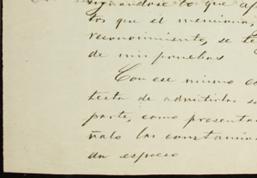 que
tos que el menciona,
reconocimiento, se te
de mis pruebas
Con ese mismo co
testa de admitirlas se
parte, como presenta
ñalo las constancia
da espacio